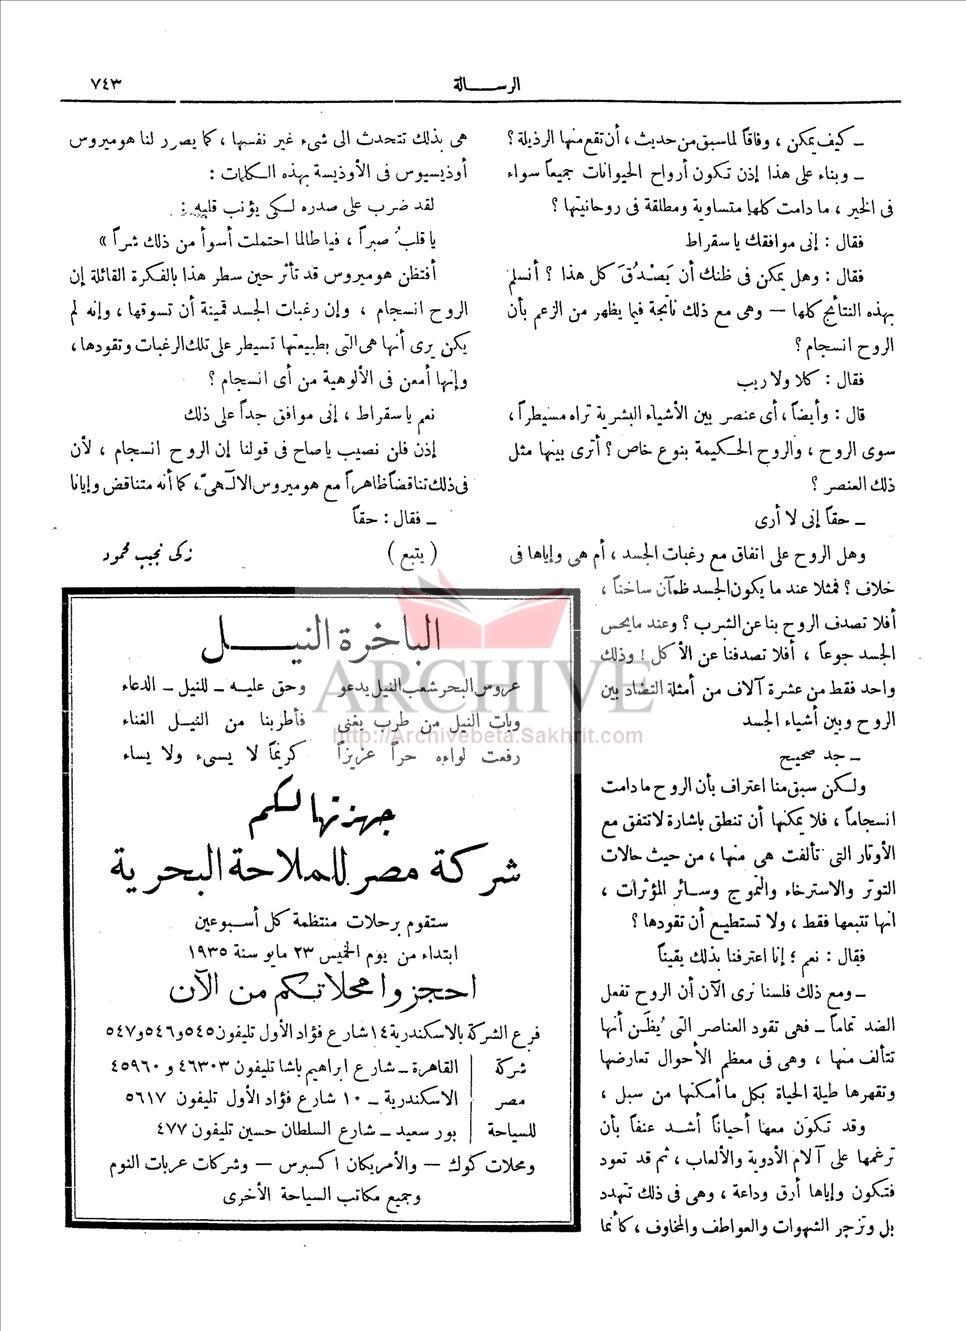 الرسـالة
٧٤٣
ـ كيف يمكن ، وفاقاً لما سبق من حديث ، أن تقع منها الرذيلة ؟
ـ وبناء على هذا إذن تكون أرواح الحيوانات جميعاً سواء
فى الخير ، ما دامت كلها متساوية ومطلقة فى روحانيتها ؟
فقال : إنى موافقك يا سقراط
فقال : وهل يمكن فى ظنك أن يَصْدُقَ كل هذا ؟ أنسلم
بهذه النتائج كلها — وهى مع ذلك ناتجة فيما يظهر من الزعم بأن
الروح انسجام ؟
فقال : كلا ولا ريب
قال : وأيضاً ، أى عنصر بين الأشياء البشرية تراه مسيطراً ،
سوى الروح ، والروح الحكيمة بنوع خاص ؟ أترى بينها مثل
ذلك العنصر ؟
ـ حقاً إنى لا أرى
وهل الروح على اتفاق مع رغبات الجسد ، أم هى وإياها فى
خلاف ؟ فمثلا عند ما يكون الجسد ظمآن ساخناً ،
أفلا تصدف الروح بنا عن الشرب ؟ وعند ما يحس
الجسد جوعاً ، أفلا تصدفنا عن الأكل ! وذلك
واحد فقط من عشرة آلاف من أمثلة التضاد بين
الروح وبين أشياء الجسد
ـ جد صحيح
ولكن سبق منا اعتراف بأن الروح ما دامت
انسجاماً ، فلا يمكنها أن تنطق باشارة لا تتفق مع
الأوتار التى تألفت هى منها ، من حيث حالات
التوتر والاسترخاء والتموج وسائر المؤثرات ،
انها تتبعها فقط ، ولا تستطيع أن تقودها ؟
فقال : نعم ؛ إنا اعترفنا بذلك يقيناً
ـ ومع ذلك فلسنا نرى الآن أن الروح تفعل
الضد تماماً ـ فهى تقود العناصر التى يُظَن أنها
تتألف منها ، وهى فى معظم الأحوال تعارضها
وتقهرها طيلة الحياة بكل ما أمكنها من سبل ،
وقد تكون معها أحياناً أشد عنفاً بأن
ترغمها على آلام الأدوية والألعاب ، ثم قد تعود
فتكون وإياها أرق وداعة ، وهى فى ذلك تهدد
بل وتزجر الشهوات والعواطف والمخاوف ، كأنما
هى بذلك تتحدث الى شىء غير نفسها ، كما يصور لنا هوميروس
أوذيسيوس فى الأوذيسة بهذه الكلمات :
لقد ضرب على صدره لكى يؤنب قلبه :
يا قلبُ صبراً ، فيا طالما احتملت أسوأ من ذلك شراً »
أفتظن هوميروس قد تأثر حين سطر هذا بالفكرة القائلة إن
الروح انسجام ، وإن رغبات الجسد قمينة أن تسوقها ، وإنه لم
يكن يرى أنها هى التى بطبيعتها تسيطر على تلك الرغبات وتقودها ،
وإنها أمعن فى الألوهية من أى انسجام ؟
نعم يا سقراط ، إنى موافق جداً على ذلك
إذن فلن نصيب ياصاح فى قولنا إن الروح انسجام ، لأن
فى ذلك تناقضاً ظاهراً مع هوميروس الالٓهىّ ، كما أنه متناقض وإيانا
ـ فقال : حقاً
( يتبع )
زكى نجيب محمود
الباخرة النيـــل
عروس البحر شعب النيل يدعو وحق عليه ـ للنيل ـ الدعاء
وبات النيل من طرب يغنى فأطربنا من النيل الغناء
رفعت لواءه حراً عزيزاً كريماً لا يسىء ولا يساء
جهزتها لكم
شركة مصر للملاحة البحرية
ستقوم برحلات منتظمة كل أسبوعين
ابتداء من يوم الخميس ٢٣ مايو سنة ١٩٣٥
احجزوا محلاتكم من الآن
فرع الشركة بالاسكندرية ١٤ شارع فؤاد الأول تليفون ٥٤٥ و٥٤٦ و٥٤٧
شركة القاهرة ـ شارع ابراهيم باشا تليفون ٤٦٣٠٣ و ٤٥٩٦٠
مصر الاسكندرية ـ ١٠ شارع فؤاد الأول تليفون ٥٦١٧
للسياحة بور سعيد ـ شارع السلطان حسين تليفون ٤٧٧
ومحلات كوك — والأمريكان اكسبرس — وشركات عربات النوم
وجميع مكاتب السياحة الأخرى
ARCHIVE
http://Archivebeta.Sakhrit.com